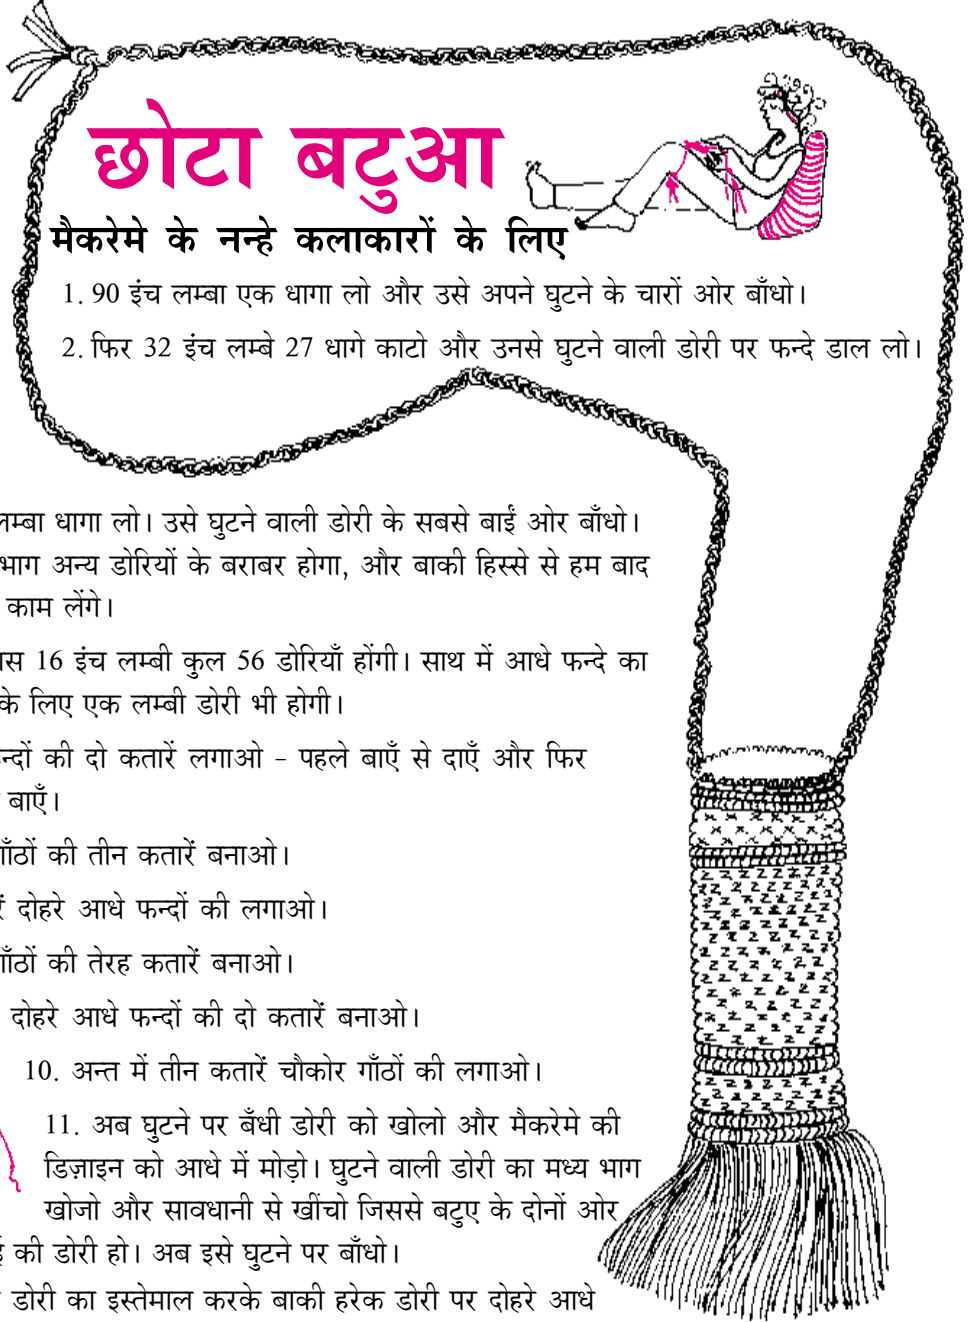 छोटा बटुआ
मैकरेमे के नन्हे कलाकारों के लिए
1. 90 इंच लम्बा एक धागा लो और उसे अपने घुटने के चारों ओर बाँधो।
2. फिर 32 इंच लम्बे 27 धागे काटो और उनसे घुटने वाली डोरी पर फन्दे डाल लो।
लम्बा धागा लो। उसे घुटने वाली डोरी के सबसे बाईं ओर बाँधो।
भाग अन्य डोरियों के बराबर होगा, और बाकी हिस्से से हम बाद
काम लेंगे।
16 इंच लम्बी कुल 56 डोरियाँ होंगी। साथ में आधे फन्दे का
के लिए एक लम्बी डोरी भी होगी।
की दो कतारें लगाओ - पहले बाएँ से दाएँ और फिर
बाएँ।
की तीन कतारें बनाओ।
दोहरे आधे फन्दों की लगाओ।
की तेरह कतारें बनाओ।
दोहरे आधे फन्दों की दो कतारें बनाओ।
10. अन्त में तीन कतारें चौकोर गाँठों की लगाओ।
11. अब घुटने पर बँधी डोरी को खोलो और मैकरेमे की
डिज़ाइन को आधे में मोड़ो। घुटने वाली डोरी का मध्य भाग
खोजो और सावधानी से खींचो जिससे बटुए के दोनों ओर
की डोरी हो। अब इसे घुटने पर बाँधो।
डोरी का इस्तेमाल करके बाकी हरेक डोरी पर दोहरे आधे